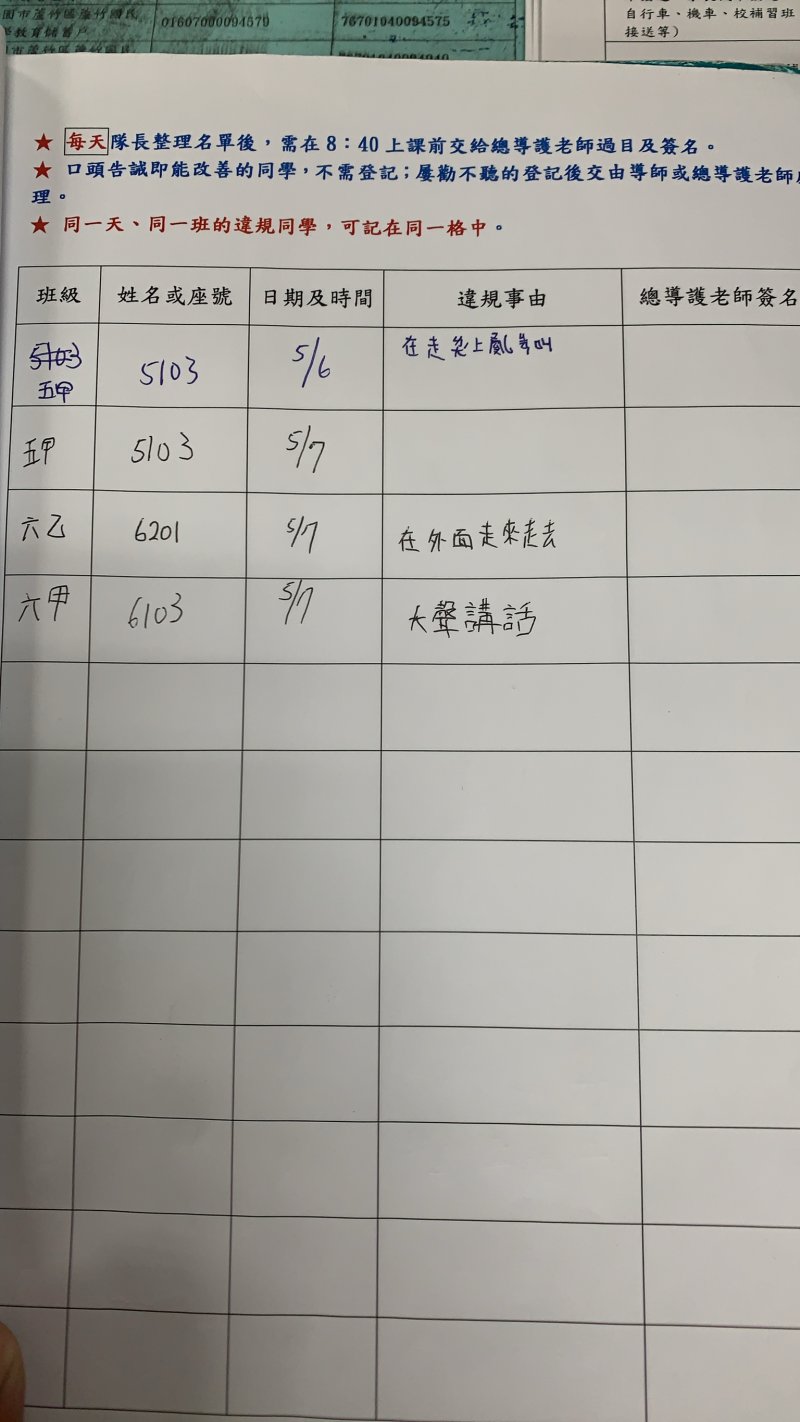 園市蘆竹區蘆竹國民 01607000094570 76701040094575
學教育儲蓄戶
自行車、機車、校補習班
接送等)
★ 每天隊長整理名單後，需在8：40上課前交給總導護老師過目及簽名。
★ 口頭告誡即能改善的同學，不需登記；屢勸不聽的登記後交由導師或總導護老師
理。
★ 同一天、同一班的違規同學，可記在同一格中。
班級 姓名或座號 日期及時間 違規事由 總導護老師簽名
5103 五甲 5103 5/6 在走 上亂 叫
五甲 5103 5/7
六乙 6201 5/7 在外面走來走去
六甲 6103 5/7 大聲講話